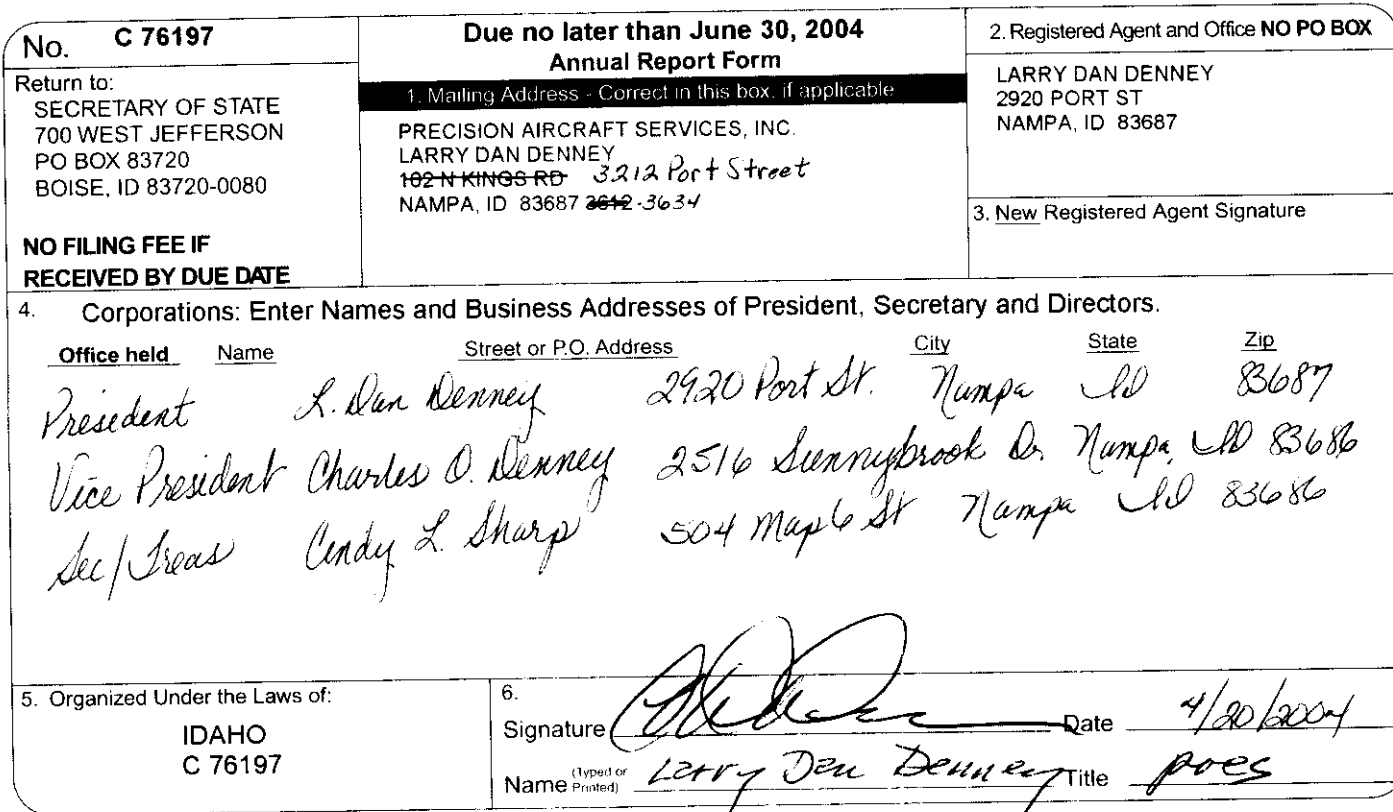 No. C 76197
Return to:
SECRETARY OF STATE
700 WEST JEFFERSON
PO BOX 83720
BOISE, ID 83720-0080
NO FILING FEE IF
RECEIVED BY DUE DATE
Due no later than June 30, 2004
Annual Report Form
1. Mailing Address - Correct in this box, if applicable
PRECISION AIRCRAFT SERVICES, INC.
LARRY DAN DENNEY
102 N KINGS RD 3212 Port Street
NAMPA, ID 83687 3612 -3634
2. Registered Agent and Office NO PO BOX
LARRY DAN DENNEY
2920 PORT ST
NAMPA, ID 83687
3. New Registered Agent Signature
4. Corporations: Enter Names and Business Addresses of President, Secretary and Directors.
Office held Name Street or P.O. Address City State Zip
President L. Dan Denney 2920 Port St. Nampa Id 83687
Vice President Charles O. Denney 2516 Sunnybrook Dr. Nampa, Id 83686
Sec/Treas Cindy L. Sharp 504 Maple St Nampa Id 83686
5. Organized Under the Laws of:
IDAHO
C 76197
6.
Signature Date 4/20/2004
Name (Typed or Printed) Larry Dan Denney Title pres